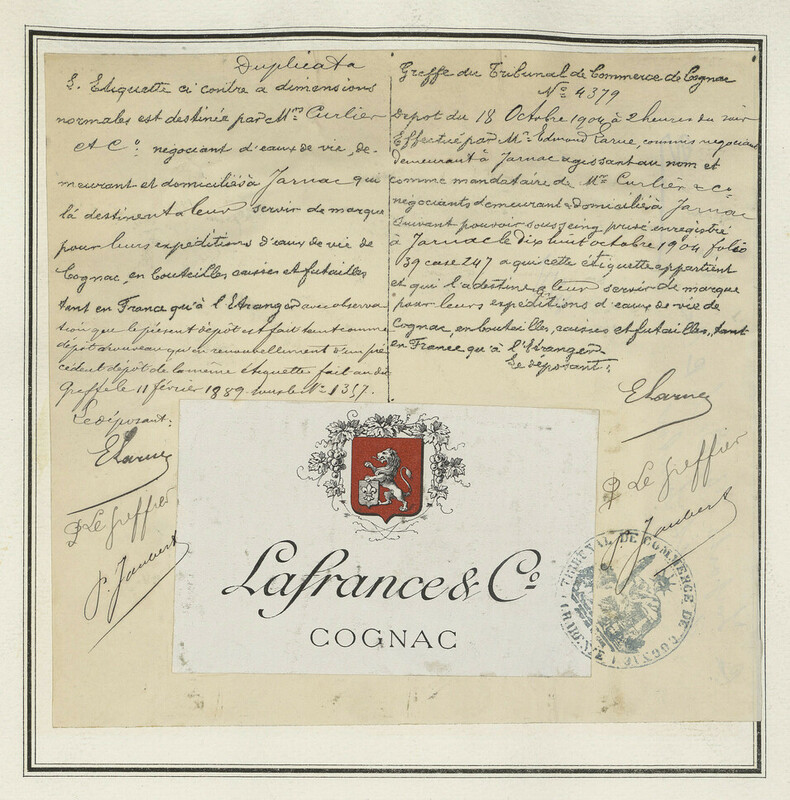 Duplicata
L'Etiquette ci contre a dimensions
normales est destinée par Mrs Curlier
et Co. negociant d'eaux de vie, de-
meurant et domiciliés à Jarnac qui
la destinent a leur servir de marque
pour leurs expéditions d'eaux de vie de
Cognac, en bouteilles caisses et futailles
tant en France qu'à l'Etranger avec observa
tion que le présent dépôt est fait tant comme
dépôt nouveau qu'en renouvellement d'un pré
cédent dépot de la même etiquette fait au dit
Greffe le 11 février 1889 sous le No 1357.
Le déposant:
ELarue
P Le Greffier
P. Jaubert
Greffe du Tribunal de Commerce de Cognac
No 4379
Depot du 18 Octobre 1904 à 2 heures du soir
Effectué par Mr Edmond Larue, commis negociant
demeurant à Jarnac agissant au nom et
comme mandataire de Mrs Curlier & Co
negociants demeurant & domiciliés à Jarnac
suivant pouvoir sous seing privé enregistré
à Jarnac le dix huit octobre 1904 folio
39 case 247 a qui cette étiquette appartient
et qui l'a destinent a leur servir de marque
pour leurs expéditions d'eaux de vie de
Cognac, en bouteilles, caisses et futailles, tant
en France qu'à l'étranger
Le déposant:
ELarue
P Le Greffier
Jaubert
Lafrance & Co
COGNAC
TRIBUNAL DE COMMERCE DE COGNAC
CHARENTE